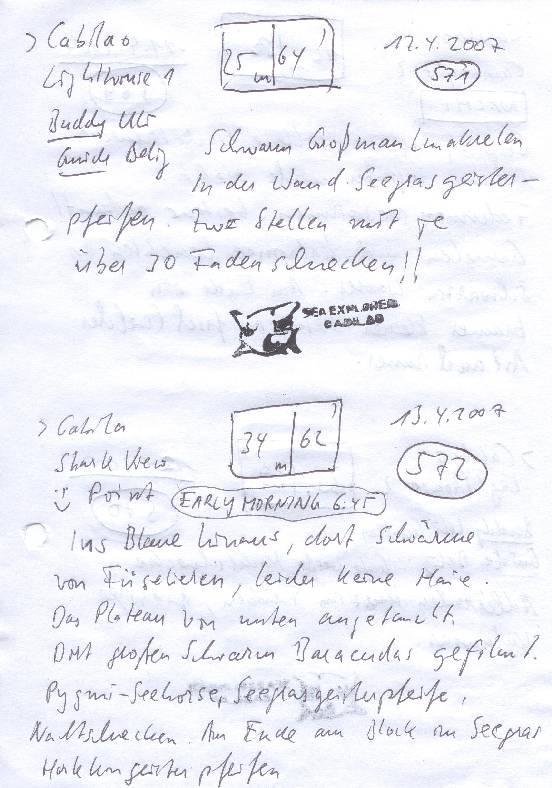 > Cabilao
Lighthouse 1
25 m | 64 '
12.4.2007
571
Buddy Ulli
Guide Delig
Schwarm Großmaulmakrelen
In der Wand Seegrasgeister-
pfeifen. Zwei Stellen mit je
über 30 Fadenschnecken!!
SEA EXPLORERS
CABILAO
> Cabilao
Shark View
Point
34 m | 62 '
13.4.2007
572
EARLY MORNING 6:45
Ins Blaue hinaus, dort Schwärme
von Füsilieren, leider keine Haie.
Das Plateau von unten angetaucht.
Dort großen Schwarm Baracudas gefilmt.
Pygmi-Seehorse, Seegrasgeisterpfeife,
Nacktschnecken. Am Ende am Block im Seegras
geisterpfeifen